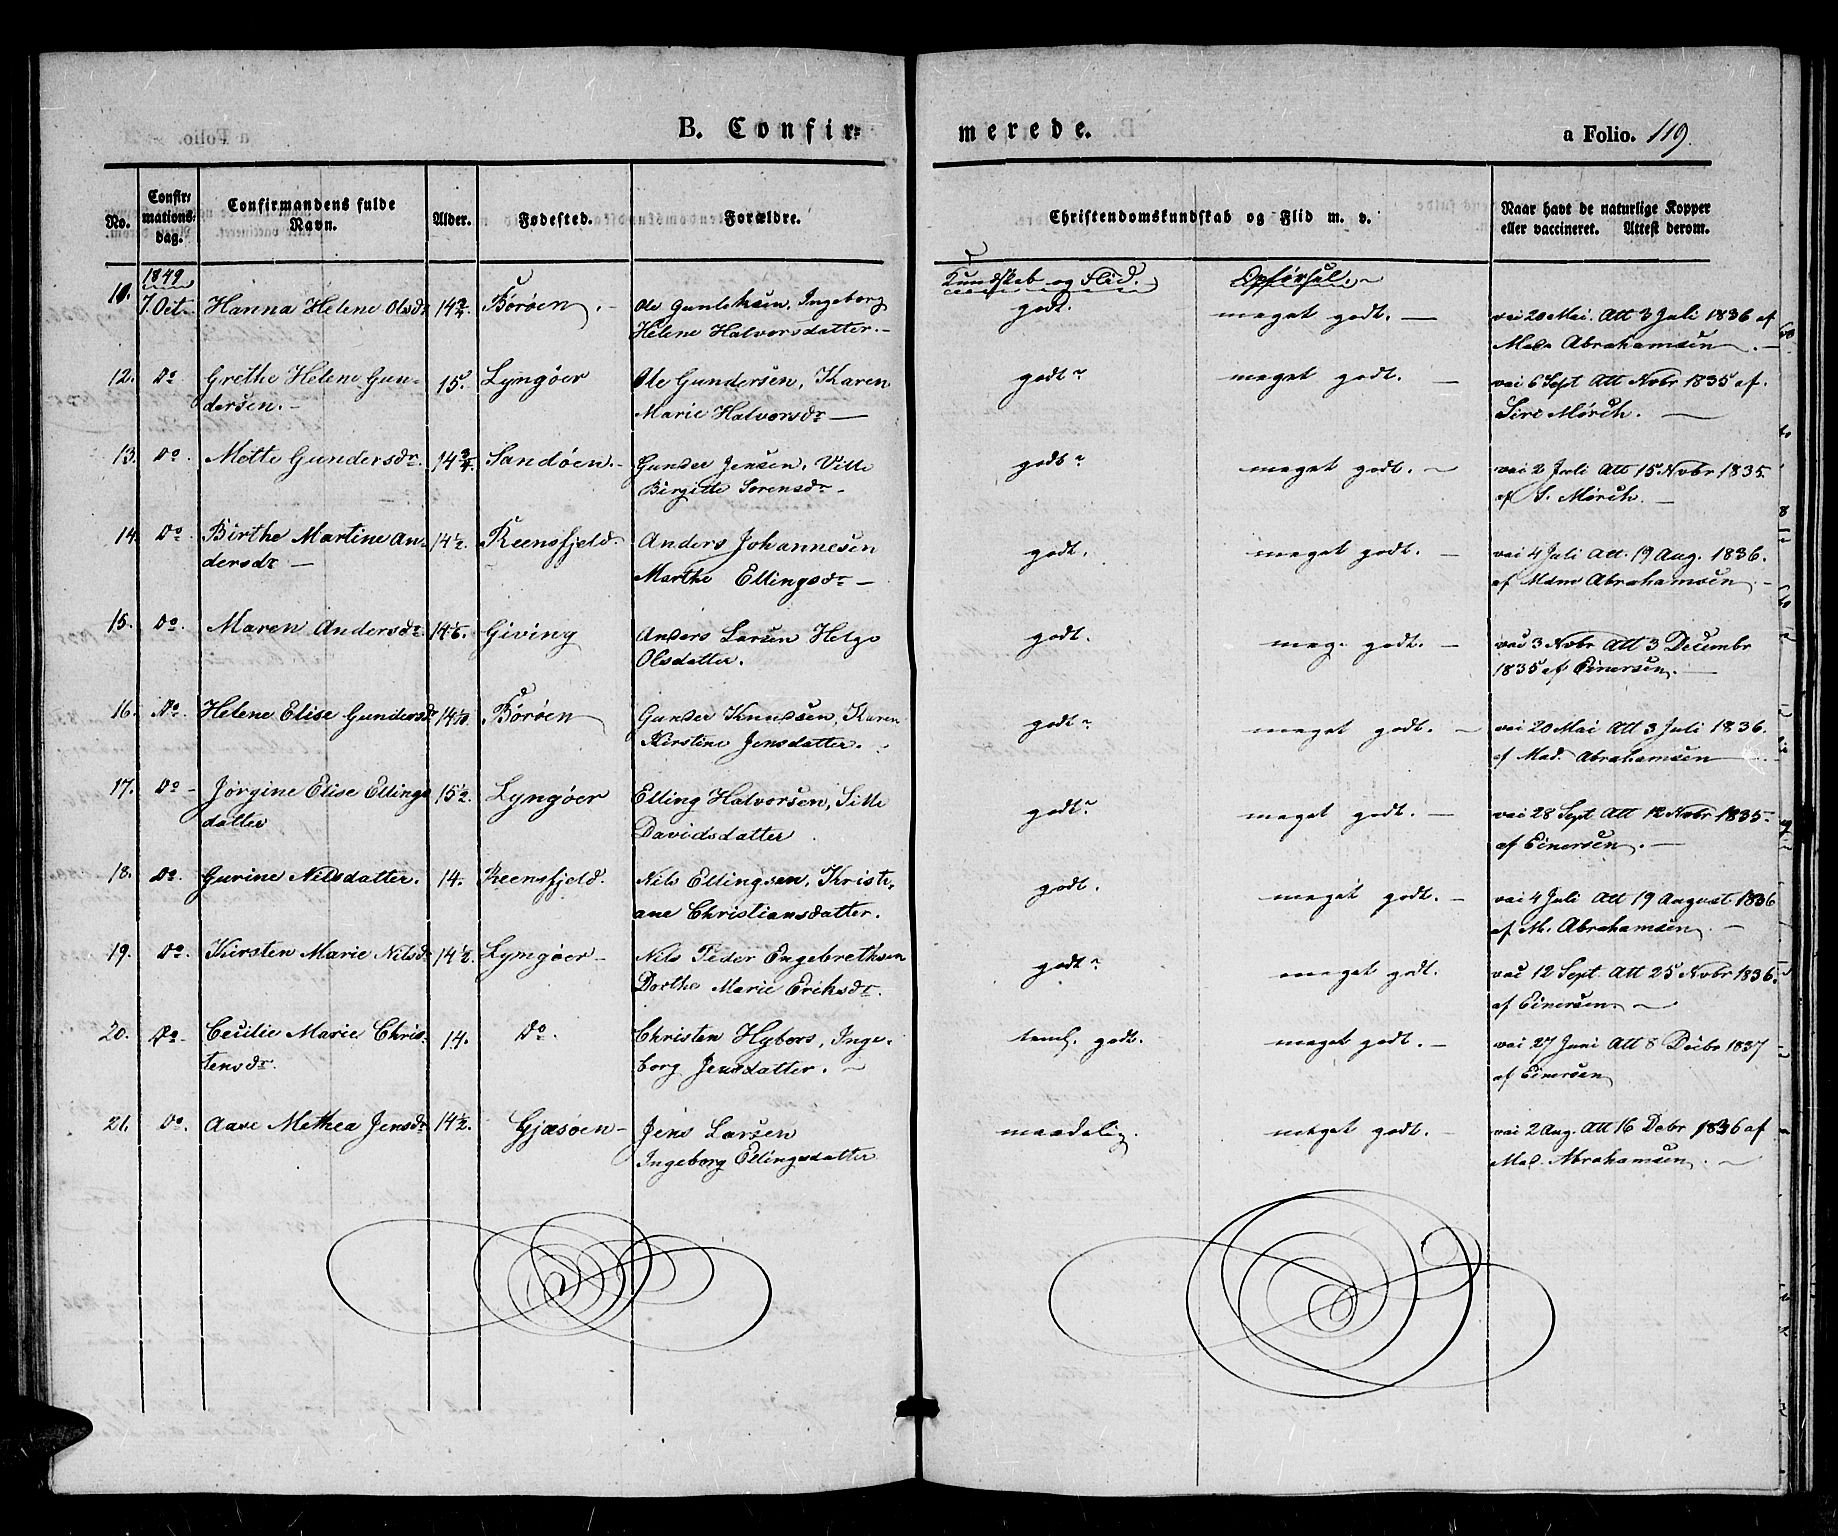 B. Confir-
merede.
a Folio. 119.
No.
Confir-
mations-
dag.
Confirmandens fulde
Navn.
Alder.
Fødested.
Forældre.
Christendomskundskab og Flid m. v.
Naar havt de naturlige Kopper
eller vaccineret. Attest derom.
1849
Kundskab og Flid. Opførsel.
11. 7. Oct. Hanna Helene Olsdr 14 2/4 Borøen. Ole Gunleksen, Ingeborg godt. meget godt. vai 20 Mai. Att 3 Juli 1836 af
Helene Halvorsdatter. Mad. Abrahamsen.
12. Do Grethe Helene Gun- 15. Lyngøer Ole Gundersen, Karen godt meget godt. vai 6 Sept Att Nvbr 1835 af.
dersen. Marie Halvorsdr Siri Mörch.
13. Do. Mette Gundersdr. 14 3/4. Sandøen. Gunder Jensen, Vitte godt meget godt. vai 2 Juli Att 15 Nvbr 1835.
Birgitte Sørensdr af S. Mörch.
14. Do. Birthe Martine An- 14 1/2. Reensfjeld. Anders Johannesen godt. meget godt. vai 4 Juli Att. 19 Aug. 1836.
dersdr Marthe Ellingsdr af Mdm Abrahamsen.
15. Do. Maren Andersdr 14 1/6. Giving Anders Larsen Helge godt. meg. godt. vai 3 Nvbr Att 3 Decembr
Olsdatter. 1835 af Einersen.
16. Do. Helene Elise Gundersdr Borøen Gunder Knudsen, Karen godt meget godt. vai 20 Mai Att 3 Juli 1836.
Kirstine Jensdatter. af Mad. Abrahamsen
17. Do Jørgine Elise Ellings 15 1/2. Lyngøer Elling Halvorsen, Sille godt meget godt. vai 28 Sept Att 12 Nvbr 1835.
datter Davidsdatter af Einersen.
18. Do. Gurine Nilsdatter. 14. Reensfjeld. Nils Ellingsen, Kristi- godt. meget godt. vai 4 Juli Att 19 August 1836
ane Christiansdatter. af M. Abrahamsen.
19. Do. Kirsten Marie Nilsdr Lyngøer Nils Peder Engebrethsen godt meget godt. vai 12 Sept. Att 25 Nvbr 1836.
Dorthe Marie Eriksdr. af Einersen
20. Do Cecilie Marie Chris- 14. Do. Christen Hybers, Inge- teml. godt. meget godt. vai 27 Juni Att 8 Dcbr 1837
tensdr. borg Jensdatter. af Einersen
21. Do. Aase Methea Jensdr 14 1/2. Gjæsøen Jens Larsen maadelig. meget godt. vai 2 Aug. Att 16 Dcbr 1836 af
Ingeborg Ellingsdatter Mad. Abrahamsen.